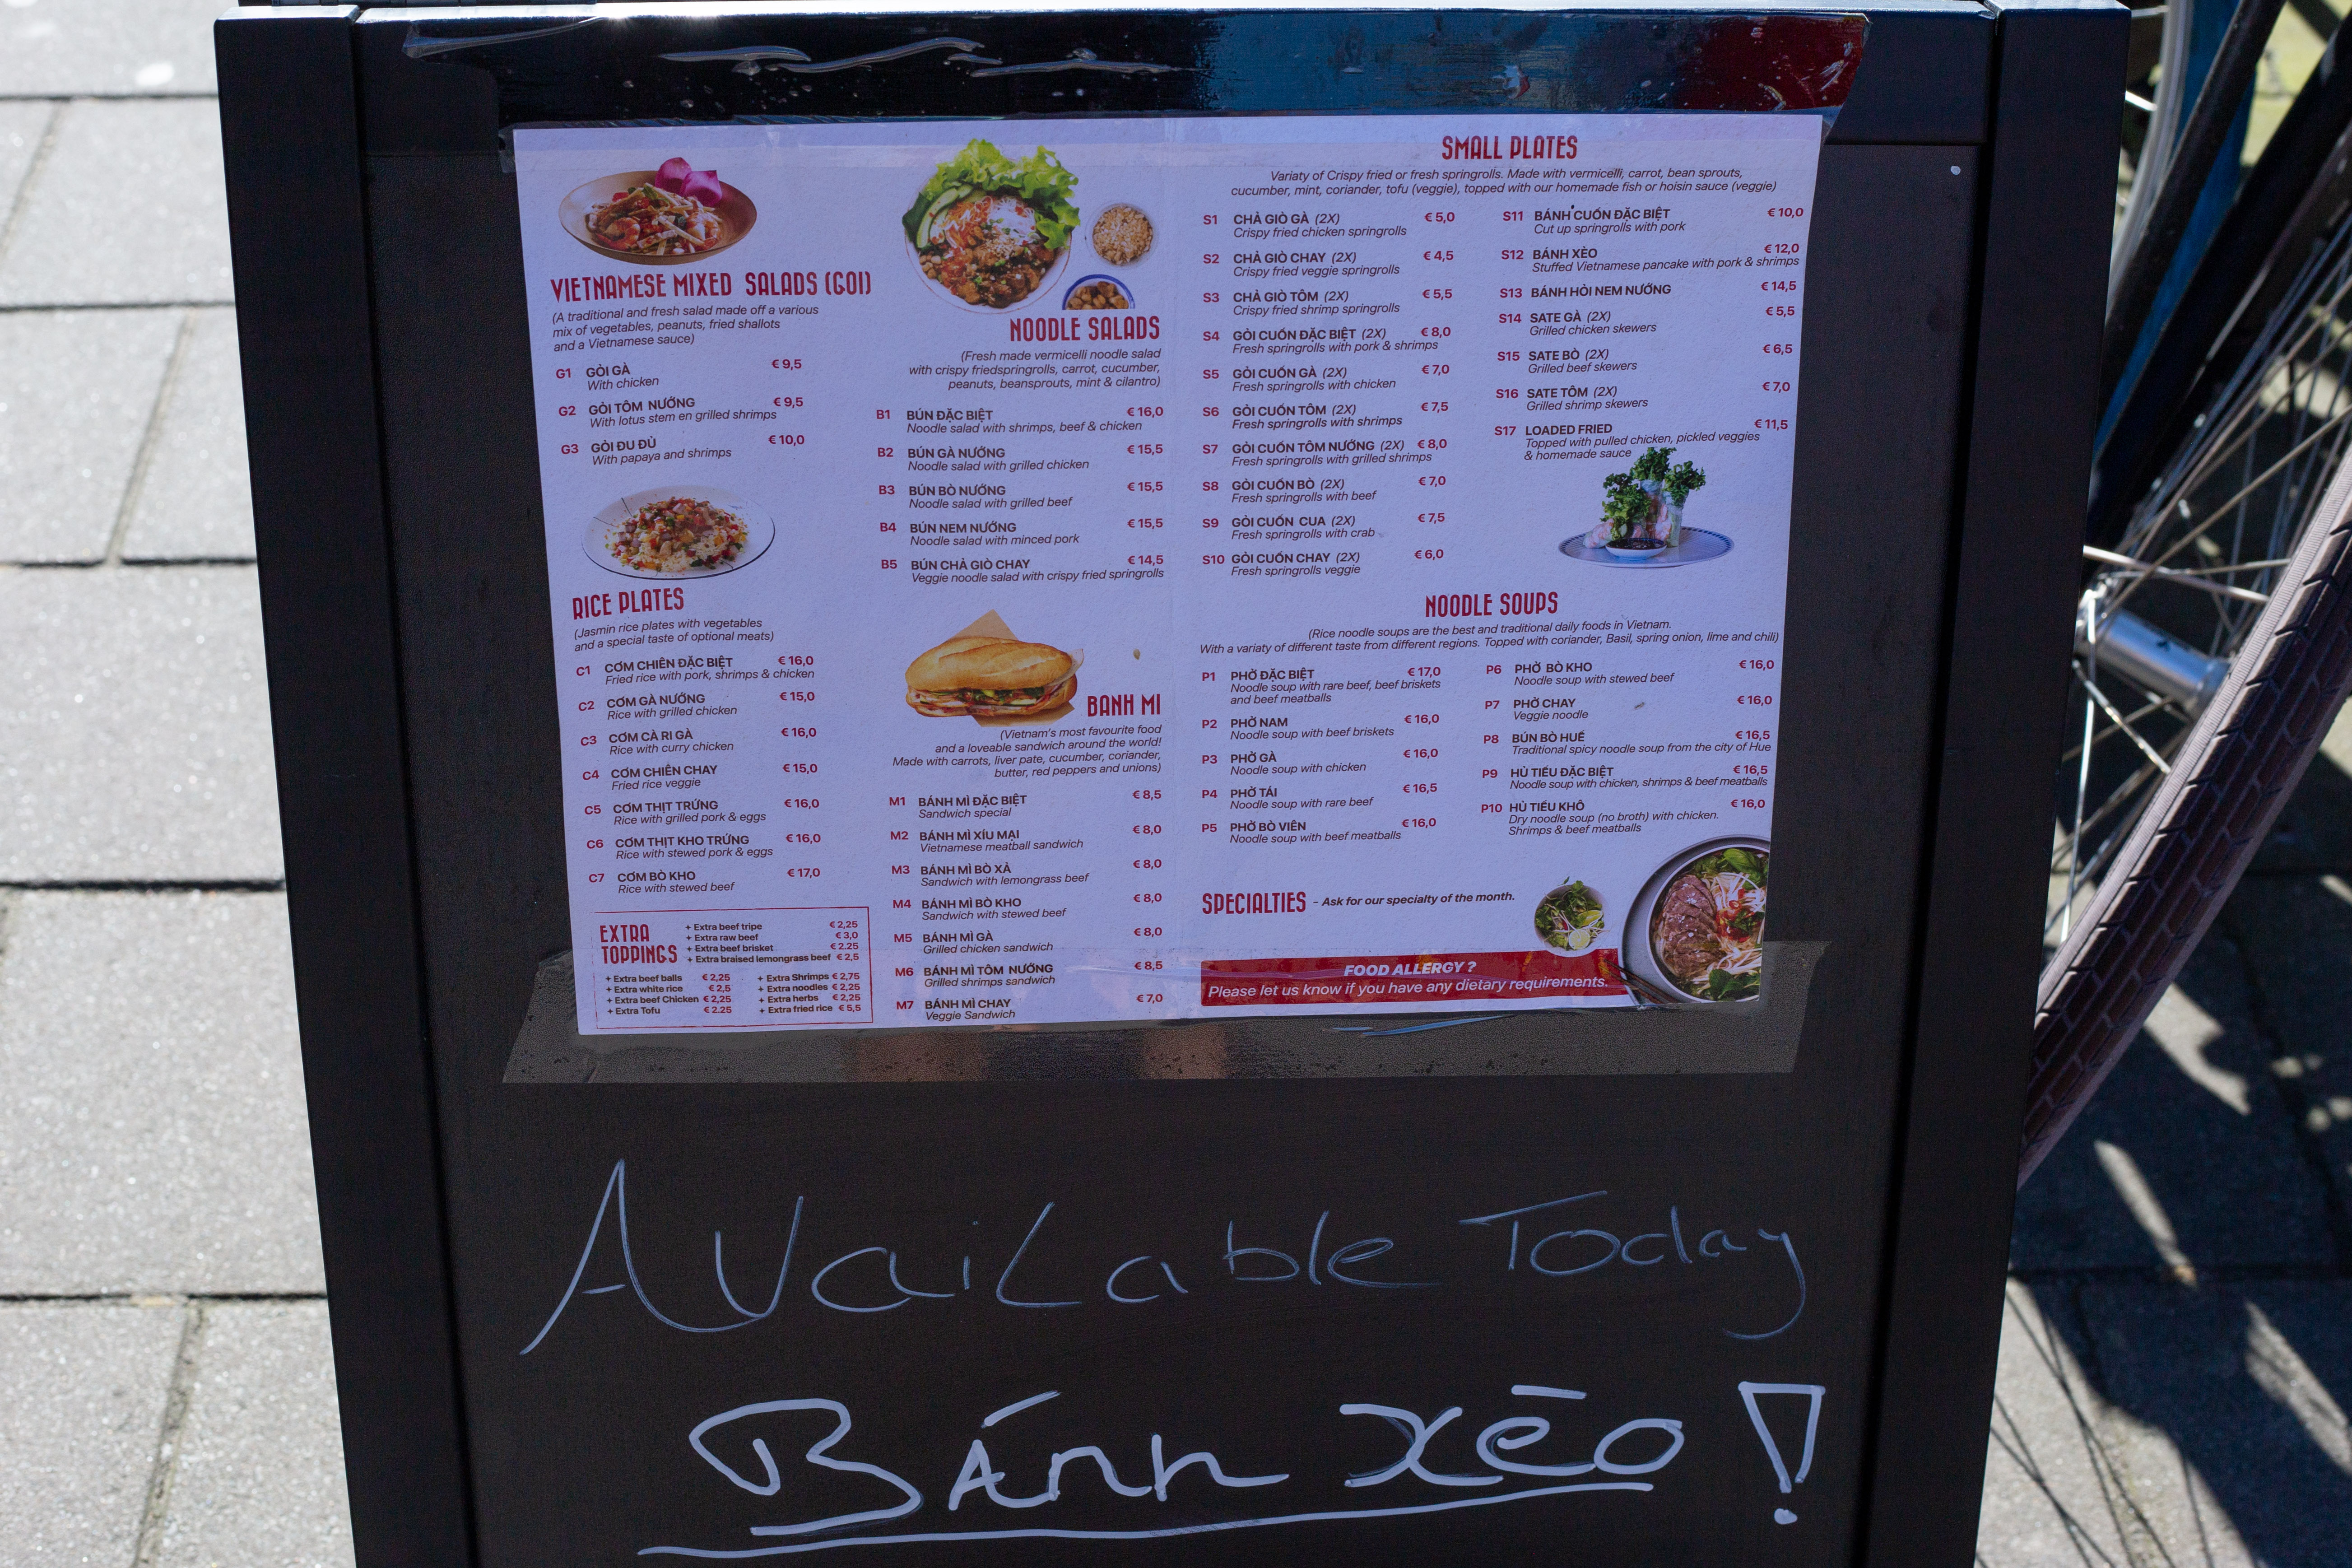 VIETNAMESE MIXED SALADS (GOI)
(A traditional and fresh salad made off a various
mix of vegetables, peanuts, fried shallots
and a Vietnamese sauce)
G1 GỎI GÀ € 9,5
With chicken
G2 GỎI TÔM NƯỚNG € 9,5
With lotus stem en grilled shrimps
G3 GỎI ĐU ĐỦ € 10,0
With papaya and shrimps
RICE PLATES
(Jasmin rice plates with vegetables
and a special taste of optional meats)
C1 CƠM CHIÊN ĐẶC BIỆT € 16,0
Fried rice with pork, shrimps & chicken
C2 CƠM GÀ NƯỚNG € 15,0
Rice with grilled chicken
C3 CƠM CÀ RI GÀ € 16,0
Rice with curry chicken
C4 CƠM CHIÊN CHAY € 15,0
Fried rice veggie
C5 CƠM THỊT TRỨNG € 16,0
Rice with grilled pork & eggs
C6 CƠM THỊT KHO TRỨNG € 16,0
Rice with stewed pork & eggs
C7 CƠM BÒ KHO € 17,0
Rice with stewed beef
EXTRA
TOPPINGS
+ Extra beef tripe € 2,25
+ Extra raw beef € 3,0
+ Extra beef brisket € 2.25
+ Extra braised lemongrass beef € 2,5
+ Extra beef balls € 2,25
+ Extra white rice € 2,5
+ Extra beef Chicken € 2,25
+ Extra Tofu € 2.25
+ Extra Shrimps € 2,75
+ Extra noodles € 2,25
+ Extra herbs € 2,25
+ Extra fried rice € 5,5
NOODLE SALADS
(Fresh made vermicelli noodle salad
with crispy friedspringrolls, carrot, cucumber,
peanuts, beansprouts, mint & cilantro)
B1 BÚN ĐẶC BIỆT € 16,0
Noodle salad with shrimps, beef & chicken
B2 BÚN GÀ NƯỚNG € 15,5
Noodle salad with grilled chicken
B3 BÚN BÒ NƯỚNG € 15,5
Noodle salad with grilled beef
B4 BÚN NEM NƯỚNG € 15,5
Noodle salad with minced pork
B5 BÚN CHẢ GIÒ CHAY € 14,5
Veggie noodle salad with crispy fried springrolls
BANH MI
(Vietnam's most favourite food
and a loveable sandwich around the world!
Made with carrots, liver pate, cucumber, coriander,
butter, red peppers and unions)
M1 BÁNH MÌ ĐẶC BIỆT € 8,5
Sandwich special
M2 BÁNH MÌ XÍU MẠI € 8,0
Vietnamese meatball sandwich
M3 BÁNH MÌ BÒ XẢ € 8,0
Sandwich with lemongrass beef
M4 BÁNH MÌ BÒ KHO € 8,0
Sandwich with stewed beef
M5 BÁNH MÌ GÀ € 8,0
Grilled chicken sandwich
M6 BÁNH MÌ TÔM NƯỚNG € 8,5
Grilled shrimps sandwich
M7 BÁNH MÌ CHAY € 7,0
Veggie Sandwich
SMALL PLATES
Variety of Crispy fried or fresh springrolls. Made with vermicelli, carrot, bean sprouts,
cucumber, mint, coriander, tofu (veggie), topped with our homemade fish or hoisin sauce (veggie)
S1 CHẢ GIÒ GÀ (2X) € 5,0
Crispy fried chicken springrolls
S2 CHẢ GIÒ CHAY (2X) € 4,5
Crispy fried veggie springrolls
S3 CHẢ GIÒ TÔM (2X) € 5,5
Crispy fried shrimp springrolls
S4 GỎI CUỐN ĐẶC BIỆT (2X) € 8,0
Fresh springrolls with pork & shrimps
S5 GỎI CUỐN GÀ (2X) € 7,0
Fresh springrolls with chicken
S6 GỎI CUỐN TÔM (2X) € 7,5
Fresh springrolls with shrimps
S7 GỎI CUỐN TÔM NƯỚNG (2X) € 8,0
Fresh springrolls with grilled shrimps
S8 GỎI CUỐN BÒ (2X) € 7,0
Fresh springrolls with beef
S9 GỎI CUỐN CUA (2X) € 7,5
Fresh springrolls with crab
S10 GỎI CUỐN CHAY (2X) € 6,0
Fresh springrolls veggie
S11 BÁNH CUỐN ĐẶC BIỆT € 10,0
Cut up springrolls with pork
S12 BÁNH XÈO € 12,0
Stuffed Vietnamese pancake with pork & shrimps
S13 BÁNH HỎI NEM NƯỚNG € 14,5
S14 SATE GÀ (2X) € 5,5
Grilled chicken skewers
S15 SATE BÒ (2X) € 6,5
Grilled beef skewers
S16 SATE TÔM (2X) € 7,0
Grilled shrimp skewers
S17 LOADED FRIED € 11,5
Topped with pulled chicken, pickled veggies
& homemade sauce
NOODLE SOUPS
(Rice noodle soups are the best and traditional daily foods in Vietnam.
With a variaty of different taste from different regions. Topped with coriander, Basil, spring onion, lime and chili)
P1 PHỞ ĐẶC BIỆT € 17,0
Noodle soup with rare beef, beef briskets
and beef meatballs
P2 PHỞ NAM € 16,0
Noodle soup with beef briskets
P3 PHỞ GÀ € 16,0
Noodle soup with chicken
P4 PHỞ TÁI € 16,5
Noodle soup with rare beef
P5 PHỞ BÒ VIÊN € 16,0
Noodle soup with beef meatballs
P6 PHỞ BÒ KHO € 16,0
Noodle soup with stewed beef
P7 PHỞ CHAY € 16,0
Veggie noodle
P8 BÚN BÒ HUẾ € 16,5
Traditional spicy noodle soup from the city of Hue
P9 HỦ TIẾU ĐẶC BIỆT € 16,5
Noodle soup with chicken, shrimps & beef meatballs
P10 HỦ TIẾU KHÔ € 16,0
Dry noodle soup (no broth) with chicken.
Shrimps & beef meatballs
SPECIALTIES - Ask for our specialty of the month.
FOOD ALLERGY ?
Please let us know if you have any dietary requirements.
Available Today
Bánh xēo !